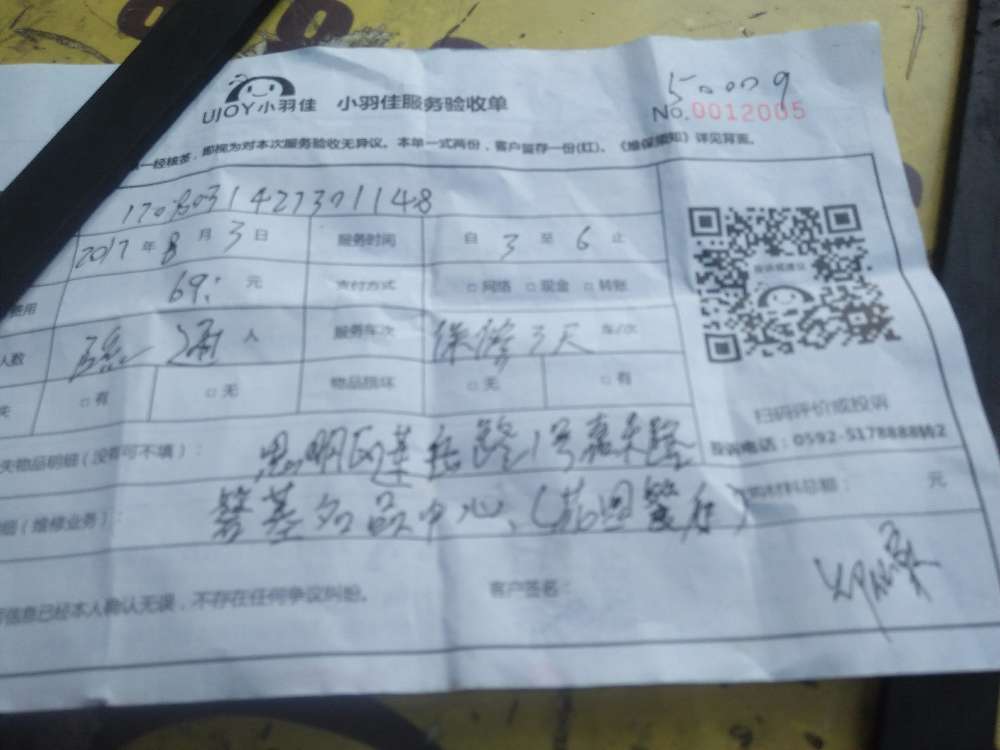 UJOY小羽佳 小羽佳服务验收单
50009
No.0012005
一经核签，即视为对本次服务验收无异议。本单一式两份，客户留存一份(红)。《维保须知》详见背面。
2017年8月3日 服务时间 自3至6止
费用 69: 元 支付方式 □网络 □现金 □转账
人数 通 人 服务车次 保修3天 车/次
失 □有 □无 物品损坏 □无 □有
投诉或建议
扫码评价或投诉
投诉电话：0592-5178888转2
失物品明细（没有可不填）： 思明区莲岳路1号嘉禾路
细（维修业务）： 磐基名品中心 材料总额： 元
信息已经本人确认无误，不存在任何争议纠纷。 客户签名：